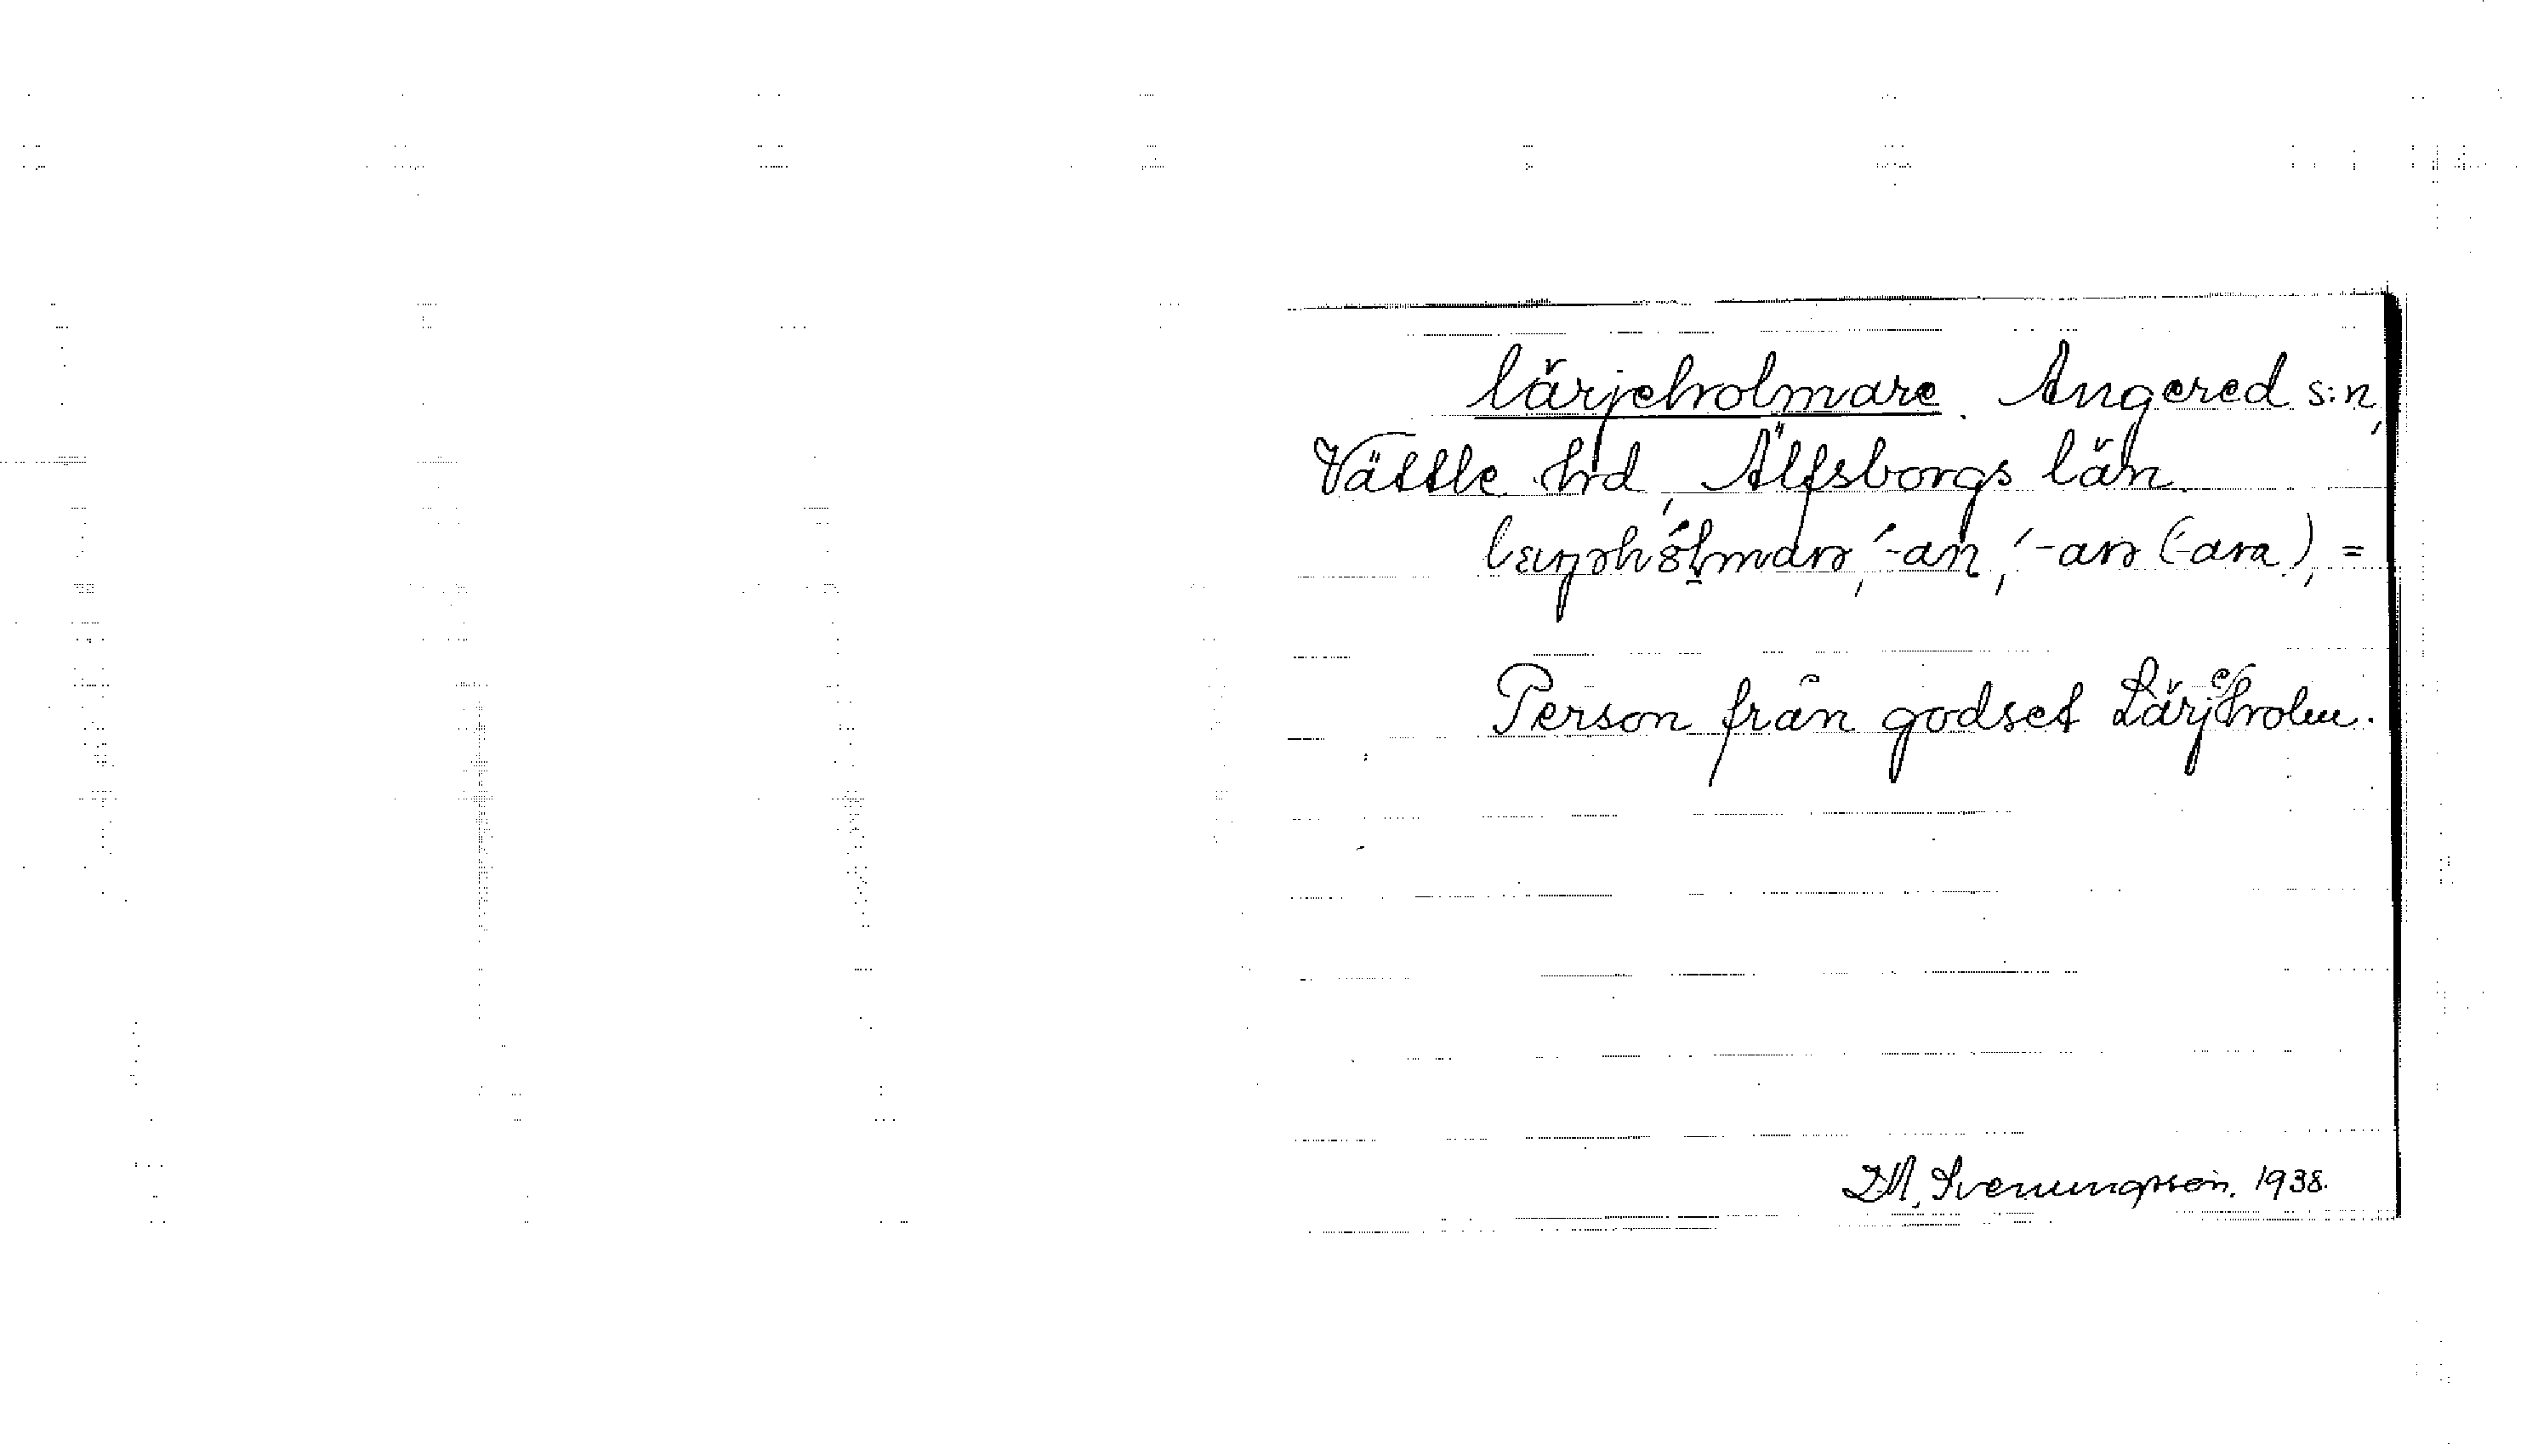 lärjeholmare. Angered s:n,
Vättle hd, Älfsborgs län.
-an, -arə (-ara), =
Person från godset Lärjeholm.
D.A. Svenungsson. 1938.